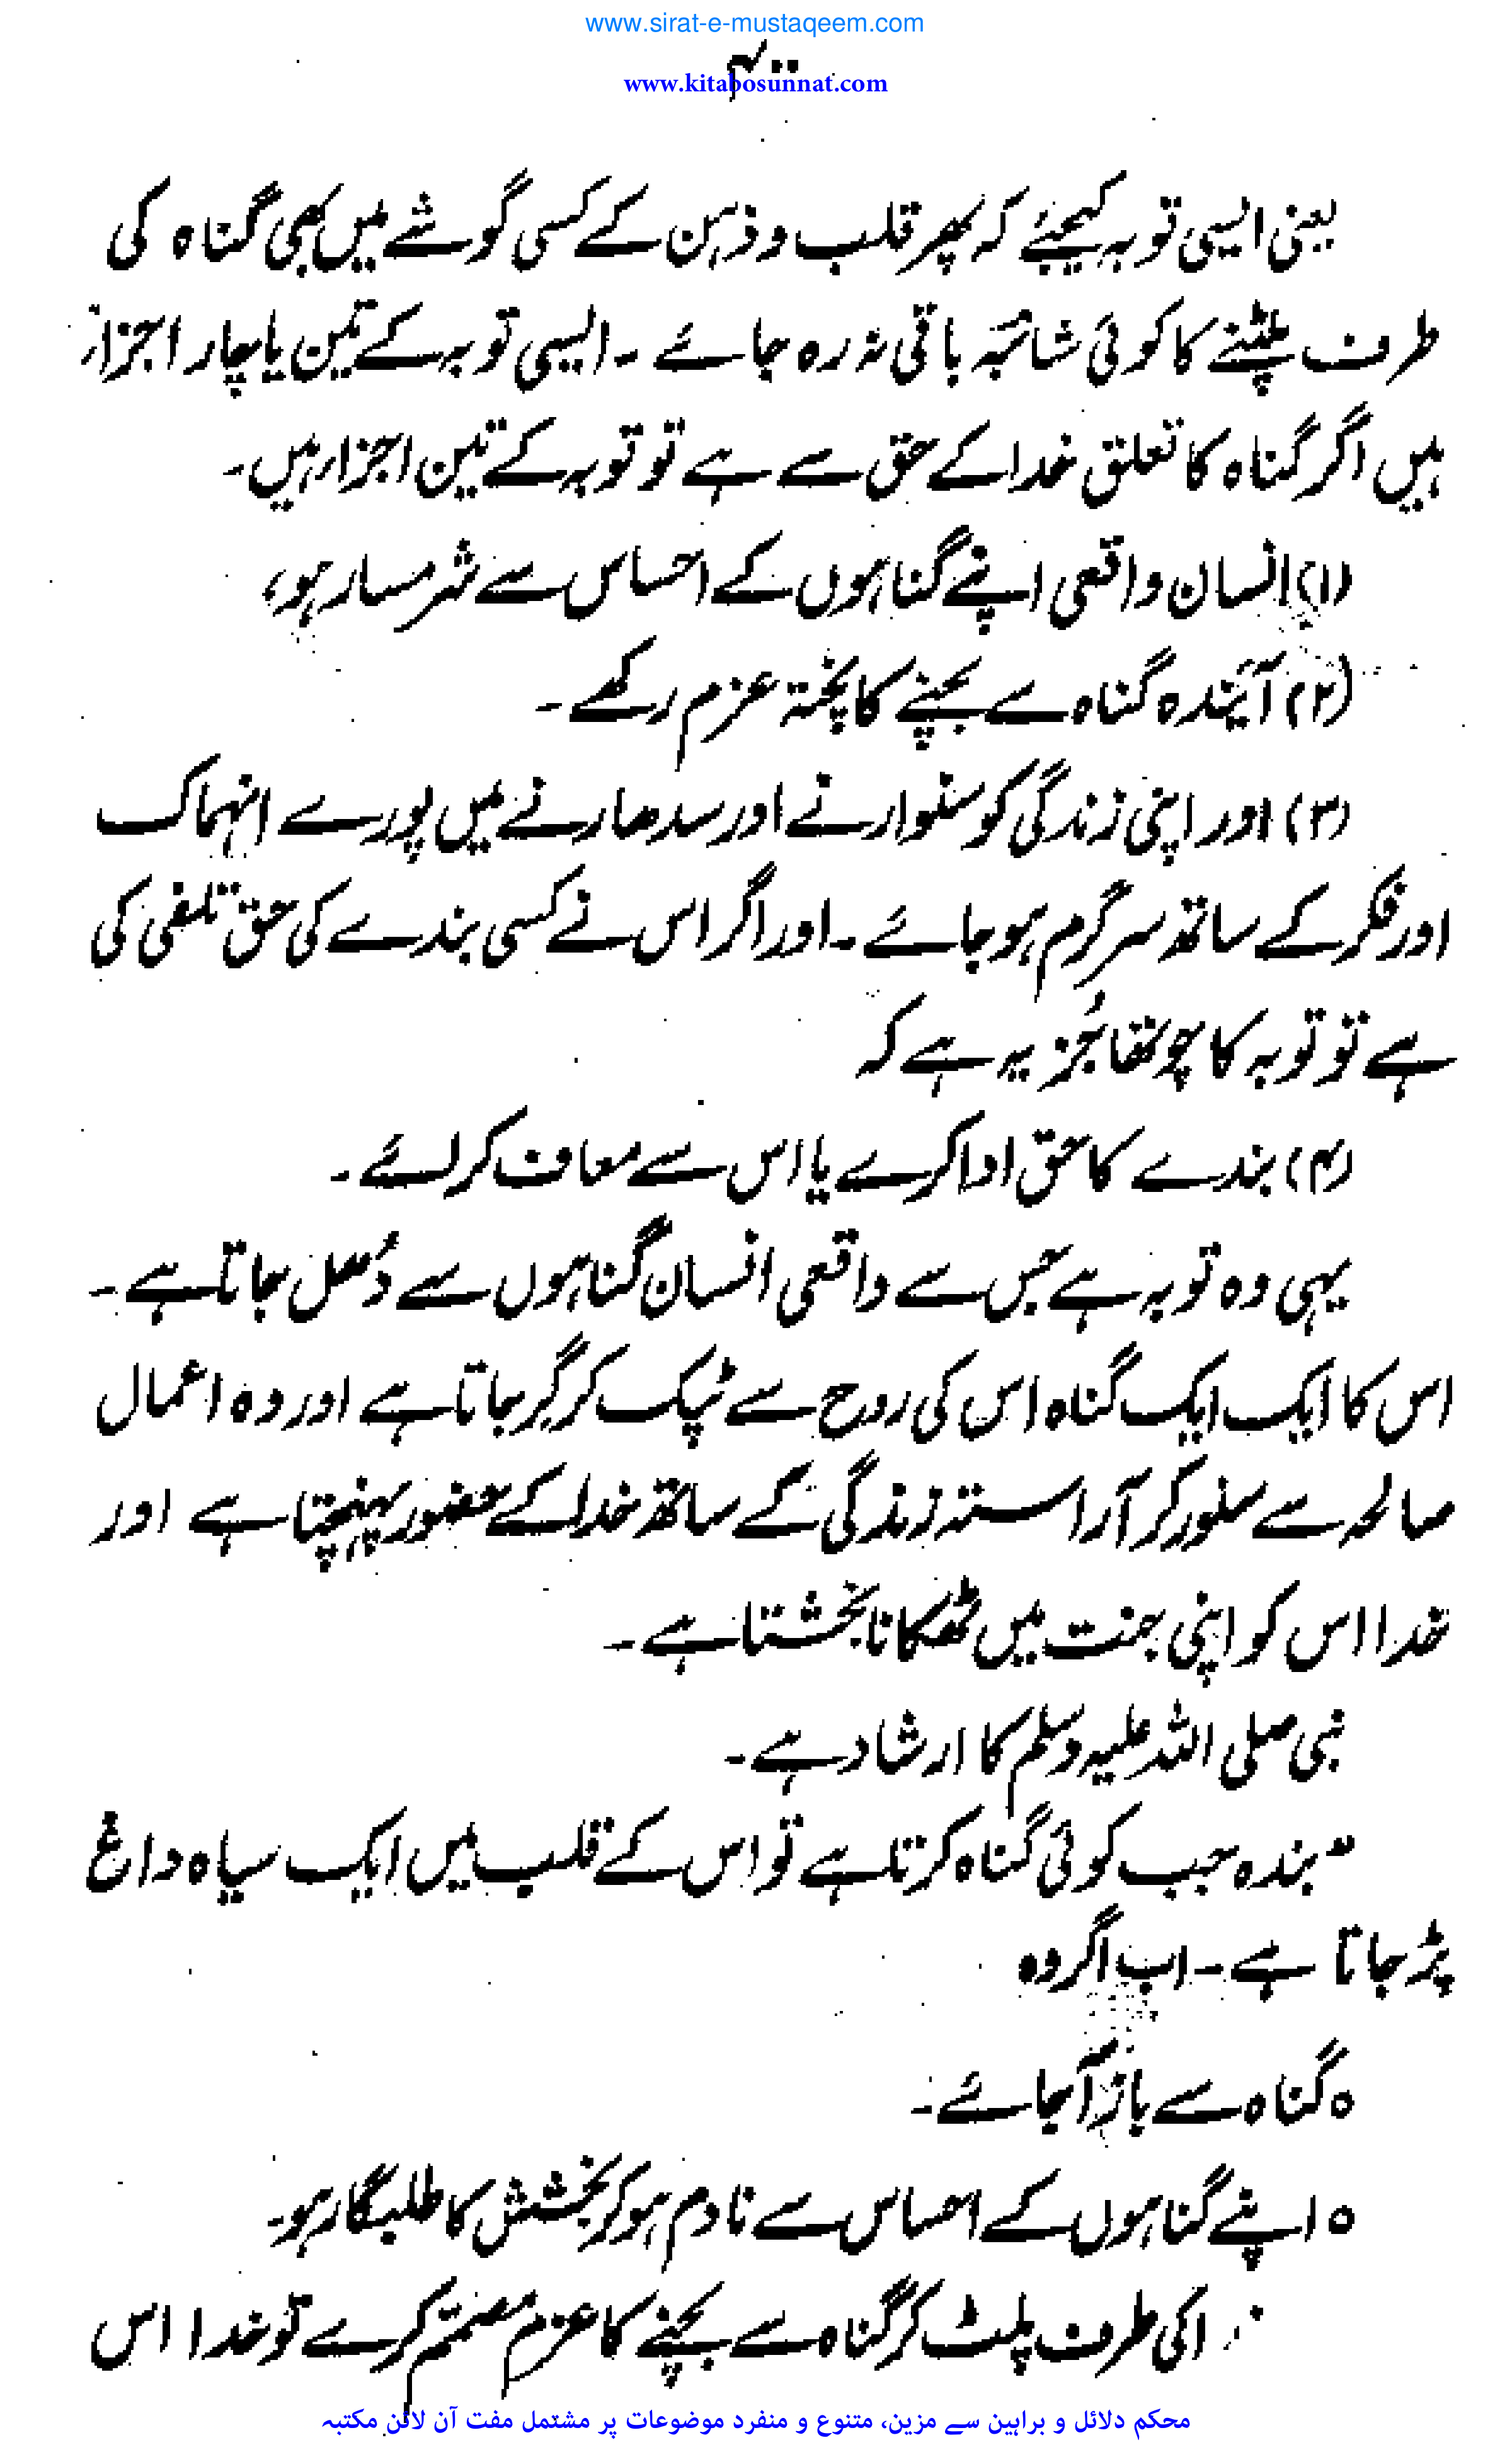 www.sirat-e-mustaqeem.com
www.kitabosunnat.com
یعنی ایسی توبہ کیجئے کہ پھر قلب و ذہن کے کسی گوشے میں بھی گناہ کی
طرف پلٹنے کا کوئی شائبہ باقی نہ رہ جائے ۔ ایسی توبہ کے تین یا چار اجزاء
ہیں اگر گناہ کا تعلق خدا کے حق سے ہے تو توبہ کے تین اجزاء ہیں۔
(۱) انسان واقعی اپنے گناہوں کے احساس سے شرمسار ہو،
(۲) آیندہ گناہ سے بچنے کا پختہ عزم رکھے ۔
(۳) اور اپنی زندگی کو سنوارنے اور سدھارنے میں پورے انہماک
اور فکر کے ساتھ سرگرم ہو جائے ۔ اور اگر اس نے کسی بندے کی حق تلفی کی
ہے تو توبہ کا چوتھا جُز یہ ہے کہ
(۴) بندے کا حق ادا کرے یا اس سے معاف کرائے ۔
یہی وہ توبہ ہے جس سے واقعی انسان گناہوں سے دُھل جاتا ہے ۔
اس کا ایک ایک گناہ اس کی روح سے ٹپک کر گر جاتا ہے اور وہ اعمال
صالحہ سے سنور کر آراستہ زندگی کے ساتھ خدا کے حضور پہنچتا ہے اور
خدا اس کو اپنی جنت میں ٹھکانا بخشتا ہے ۔
نبی صلی اللہ علیہ وسلم کا ارشاد ہے ۔
”بندہ جب کوئی گناہ کرتا ہے تو اس کے قلب میں ایک سیاہ داغ
پڑ جاتا ہے ۔ اب اگر وہ
○ گناہ سے باز آجائے ۔
○ اپنے گناہوں کے احساس سے نادم ہو کر بخشش کا طلبگار ہو۔
کی طرف پلٹ کر گناہ سے بچنے کا عزم مصمّم کرے تو خدا اس
محکم دلائل و براہین سے مزین، متنوع و منفرد موضوعات پر مشتمل مفت آن لائن مکتبہ